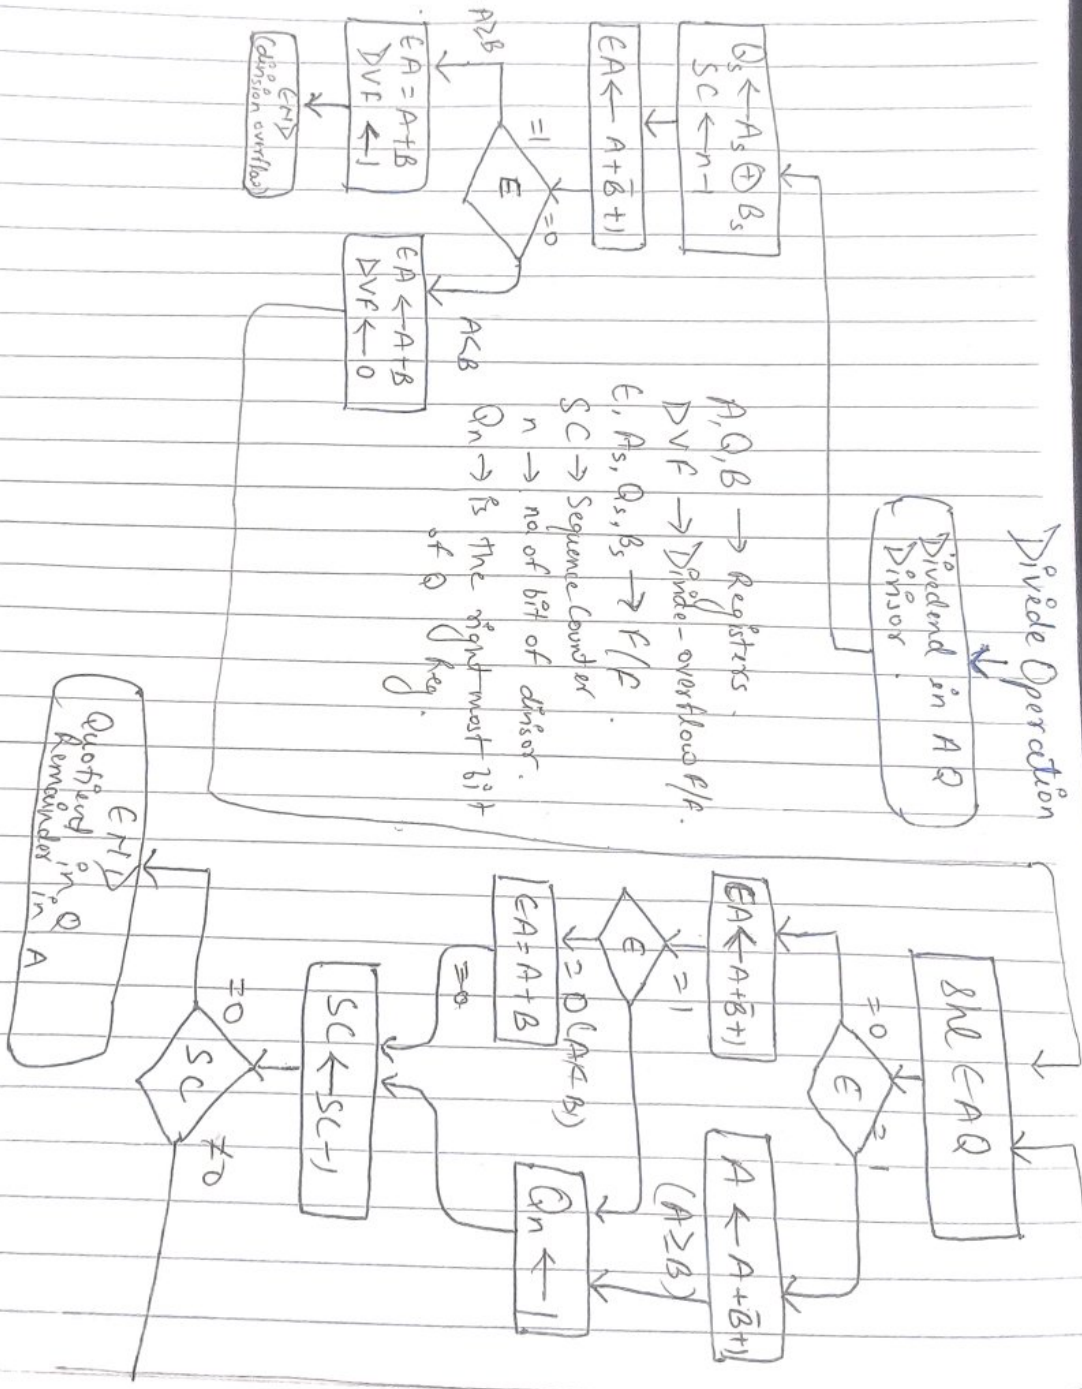 Divide Operation
Dividend in A Q
Divisor.
Qs ← As ⊕ Bs
SC ← n-1
EA ← A + B̄ + 1
E
=1
=0
A≥B
A<B
EA = A+B
DVF ← 1
END
(division overflow)
EA ← A+B
DVF ← 0
A, Q, B → Registers
DVF → Divide-overflow F/F.
E, As, Qs, Bs → F/F.
SC → Sequence Counter
n → no of bit of divisor.
Qn → is the right most bit
of Q Reg.
Shl EAQ
E
=0
=1
EA ← A+B̄+1
A ← A+B̄+1
(A≥B)
E
=1
=0 (A<B)
EA = A+B
Qn ← 1
=0
SC ← SC-1
SC
=0
≠0
END
Quotient in Q
Remainder in A